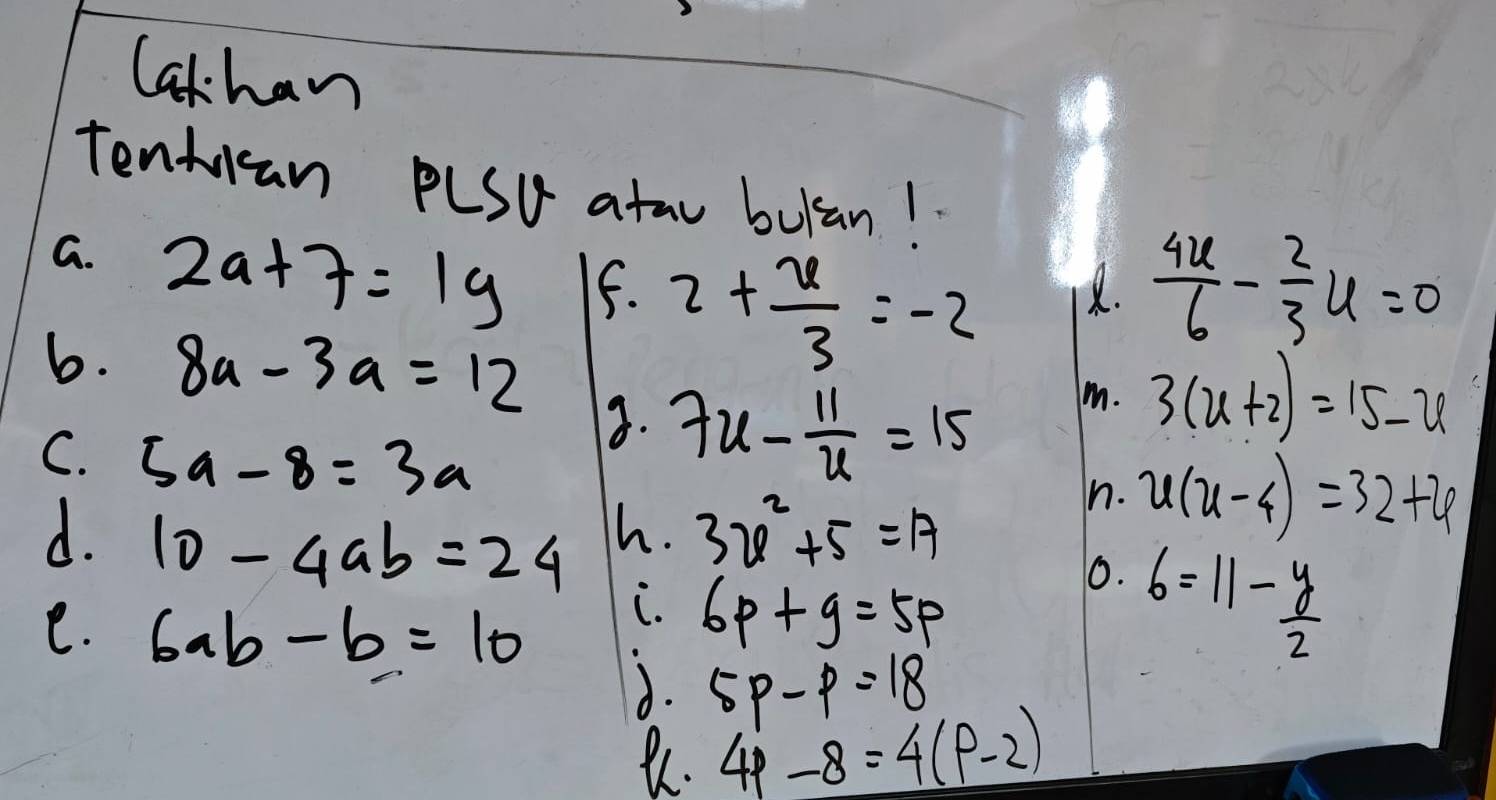 Latihan
Tentukan PLSV atau bukan!
a. 2a + 7 = 19
b. 8a - 3a = 12
c. 5a - 8 = 3a
d. 10 - 4ab = 24
e. 6ab - b = 10
f. 2 + x/3 = -2
g. 7x - 11/x = 15
h. 3x² + 5 = 17
i. 6p + 9 = 5p
j. 5p - p = 18
k. 4p - 8 = 4(p - 2)
l. 4x/6 - 2/3 x = 0
m. 3(x + 2) = 15 - x
n. x(x - 4) = 32 + x
o. 6 = 11 - y/2